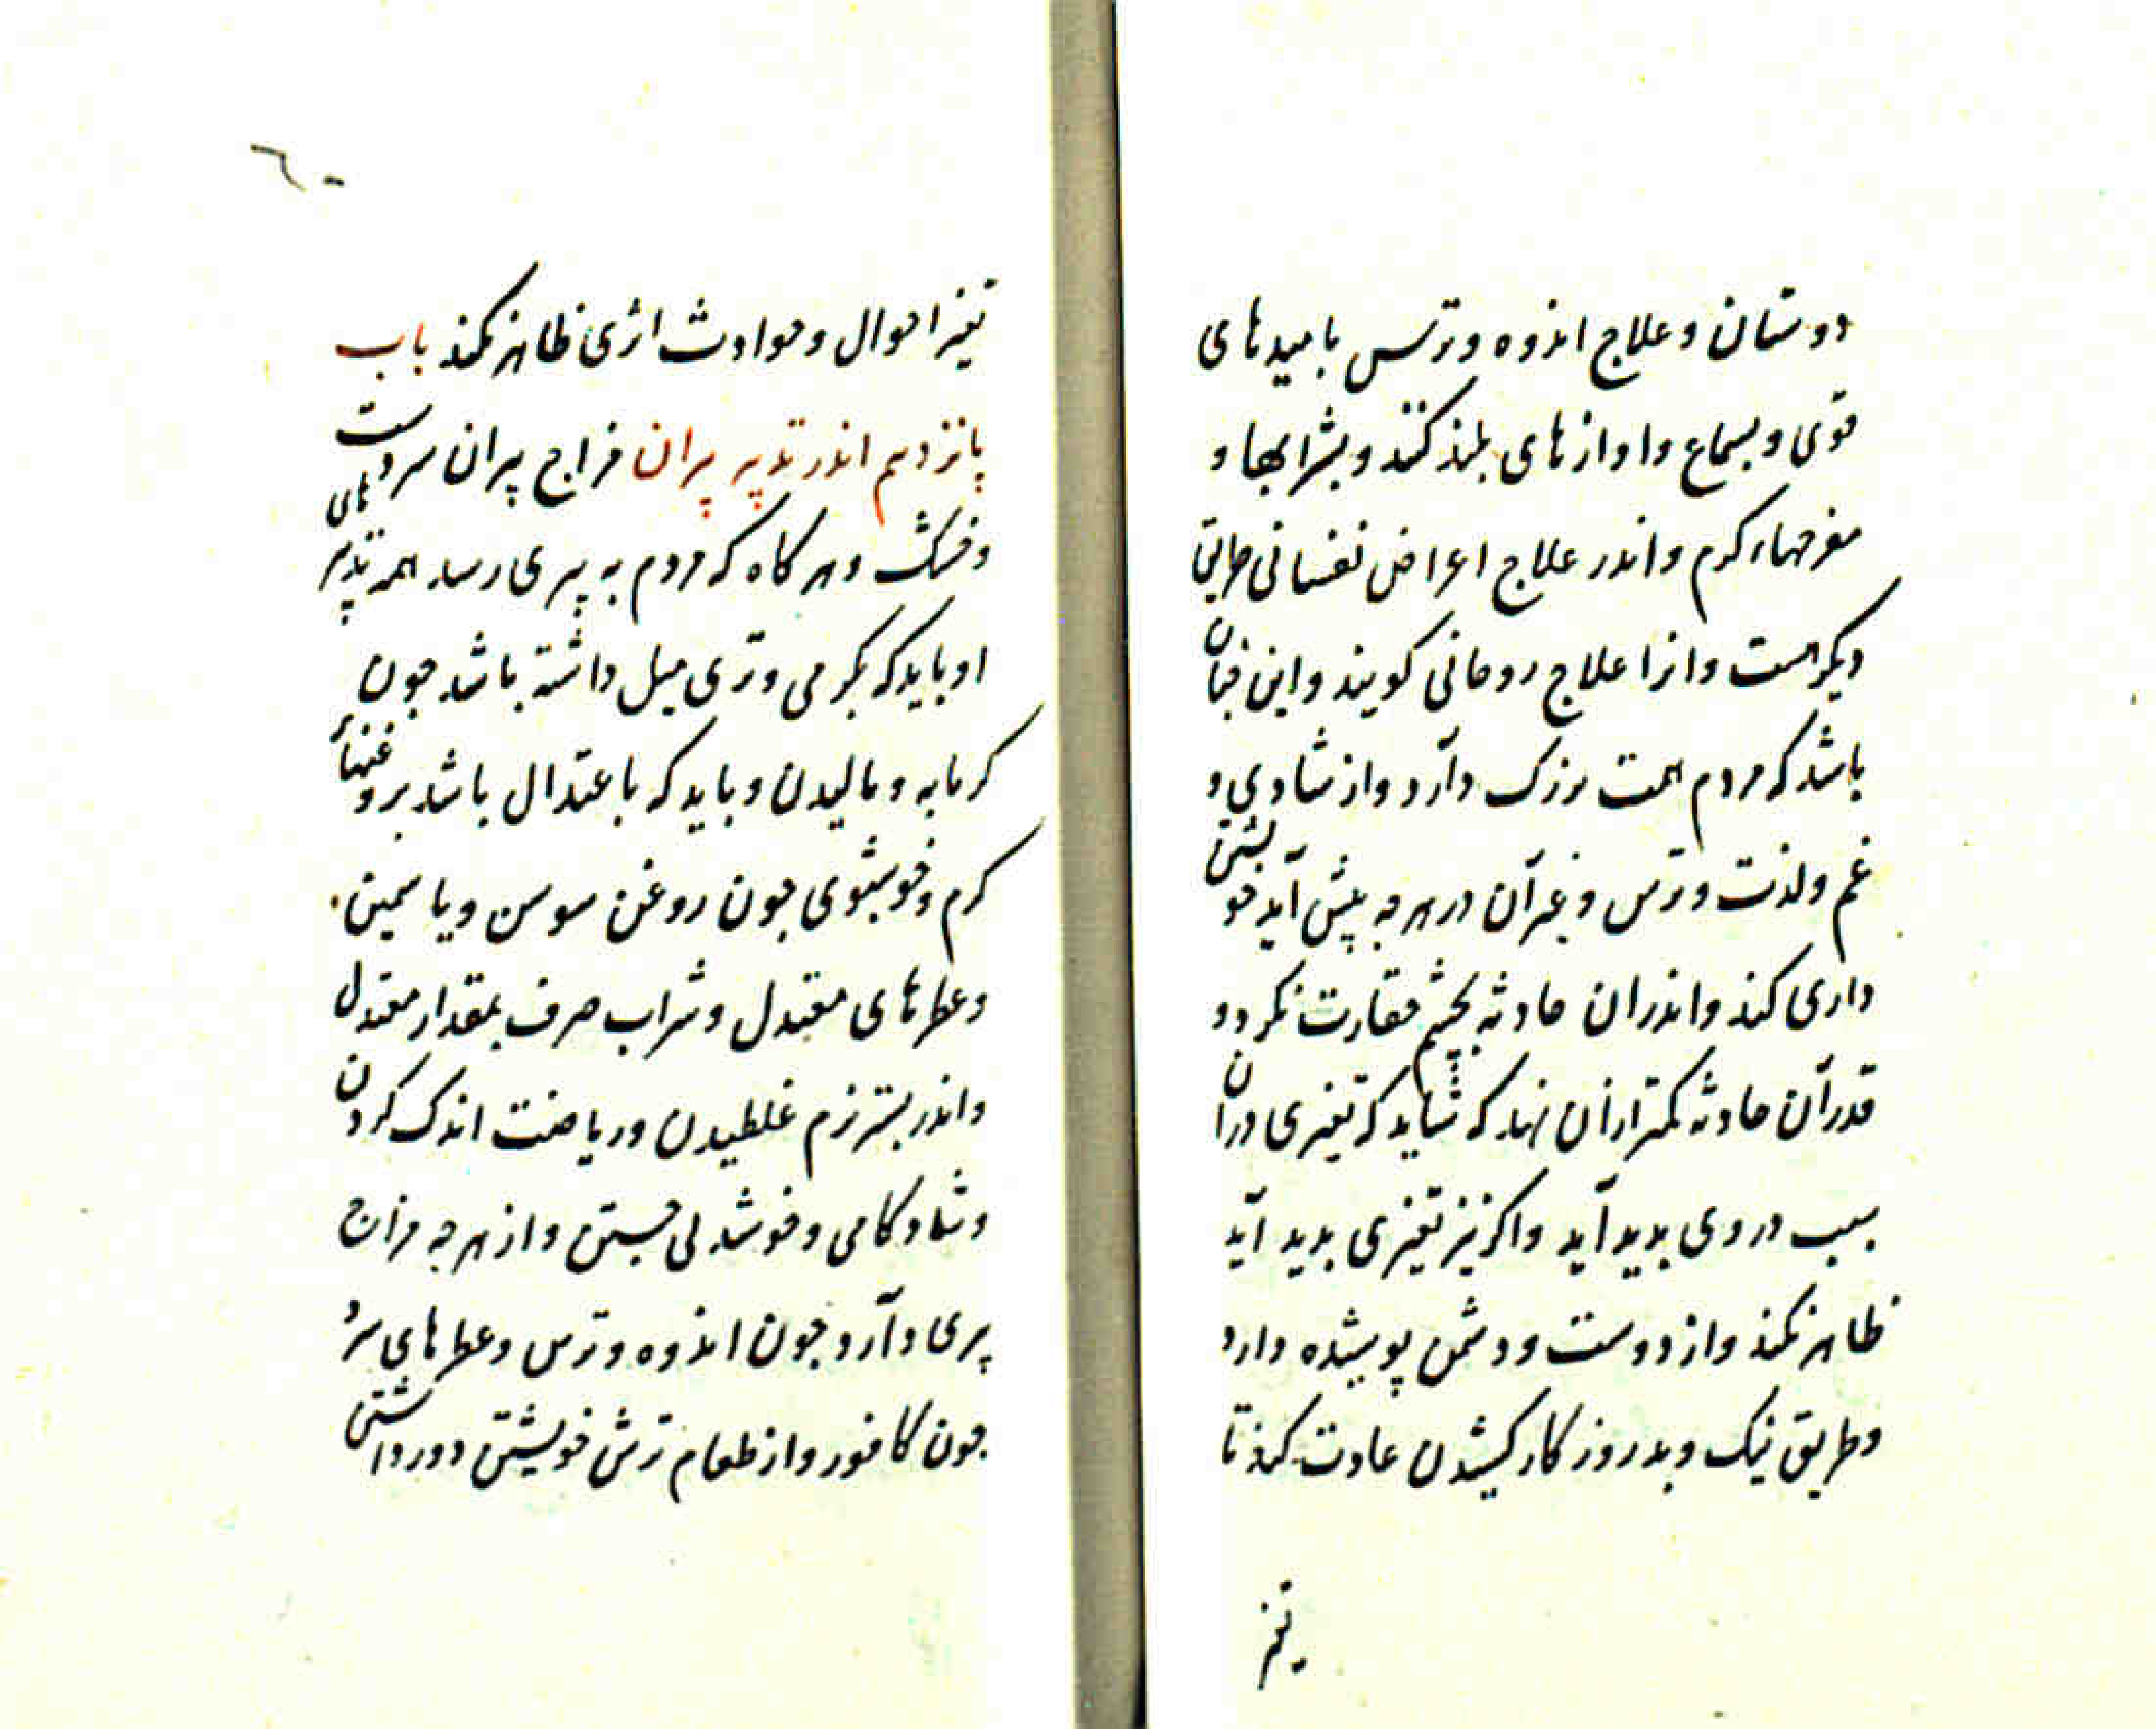 دوستان و علاج اندوه و ترس بامیدهای
قوی و بسماع و اوازهای بلند کنند و بشرابها و
مفرحهاء کرم و اندر علاج اعراض نفسانی طریقی
دیکر است و انرا علاج روحانی کویند و این چنان
باشد که مردم همت بزرک دارد و از شادی و
غم و لذت و ترس و غیر آن در هر جه پیش آید خویشتن
داری کند و اندران حادثه بچشم حقارت نکرد و
قدر آن حادثه کمتر ازان نهد که شاید که تغیری دران
سبب در وی بدید آید و اکر نیز تغیری بدید آید
ظاهر نکند و از دوست و دشمن پوشیده دارد
و طریق نیک و بد روزکار کشیدن عادت کند تا
تغیر
٦٠
تغیر احوال و حوادث اثری ظاهر نکند باب
پانزدهم اندر تدبیر پیران مزاج پیران سردست
و خشک و هر کاه که مردم به پیری رسد همه تدبیرهای
او باید که بکرمی و تری میل داشته باشد جون
کرمابه و مالیدن و باید که باعتدال باشد بروغنهاء
کرم و خوشبوی جون روغن سوسن و یاسمین
و عطرهای معتدل و شراب صرف بمقدار معتدل
و اندر بستر نرم غلطیدن و ریاضت اندک کردن
و شادکامی و خوشدلی جستن و از هر جه مزاج
پیری دآرد جون اندوه و ترس و عطرهای سرد
جون کافور و از طعام ترش خویشتن دور داشتن